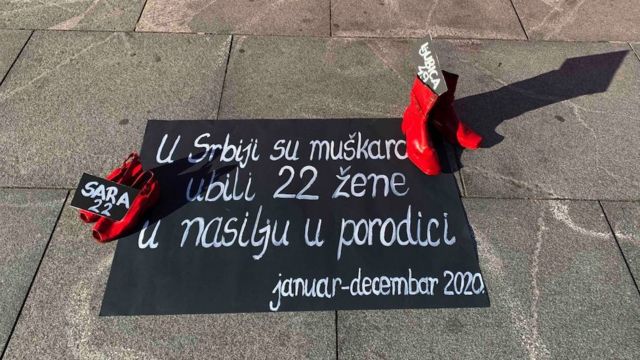 LJUBICA
U Srbiji su muškarc
ubili 22 žene
SARA
22
u nasilju u porodici
januar-decembar 2020.